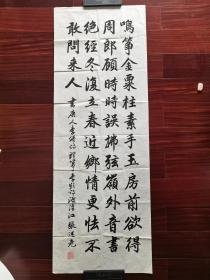 鳴箏金粟柱素手玉房前欲得
周郎顧時時誤拂弦嶺外音書
絕經冬復立春近鄉情更怯不
敢問來人 書唐人李端聽箏 李頻渡漢江 張